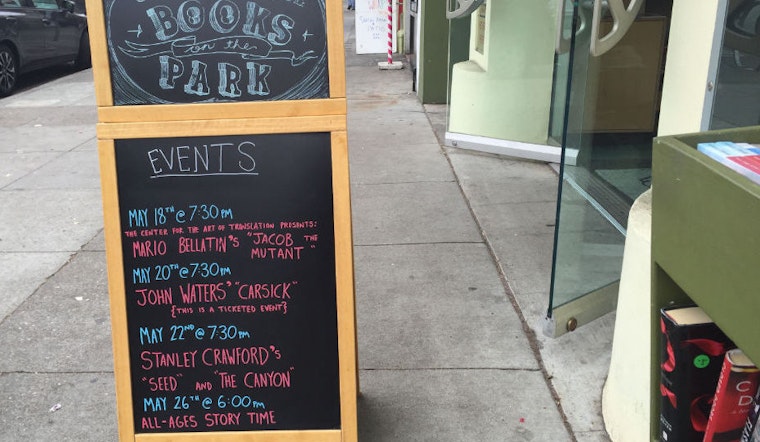 BOOKS
on the
PARK
EVENTS
MAY 18TH @ 7:30 PM
THE CENTER FOR THE ART OF TRANSLATION PRESENTS:
MARIO BELLATIN'S "JACOB THE
MUTANT"
MAY 20TH @ 7:30 PM
JOHN WATERS' "CARSICK"
{THIS IS A TICKETED EVENT}
MAY 22ND @ 7:30 PM
STANLEY CRAWFORD'S
"SEED" AND "THE CANYON"
MAY 26TH @ 6:00 PM
ALL-AGES STORY TIME